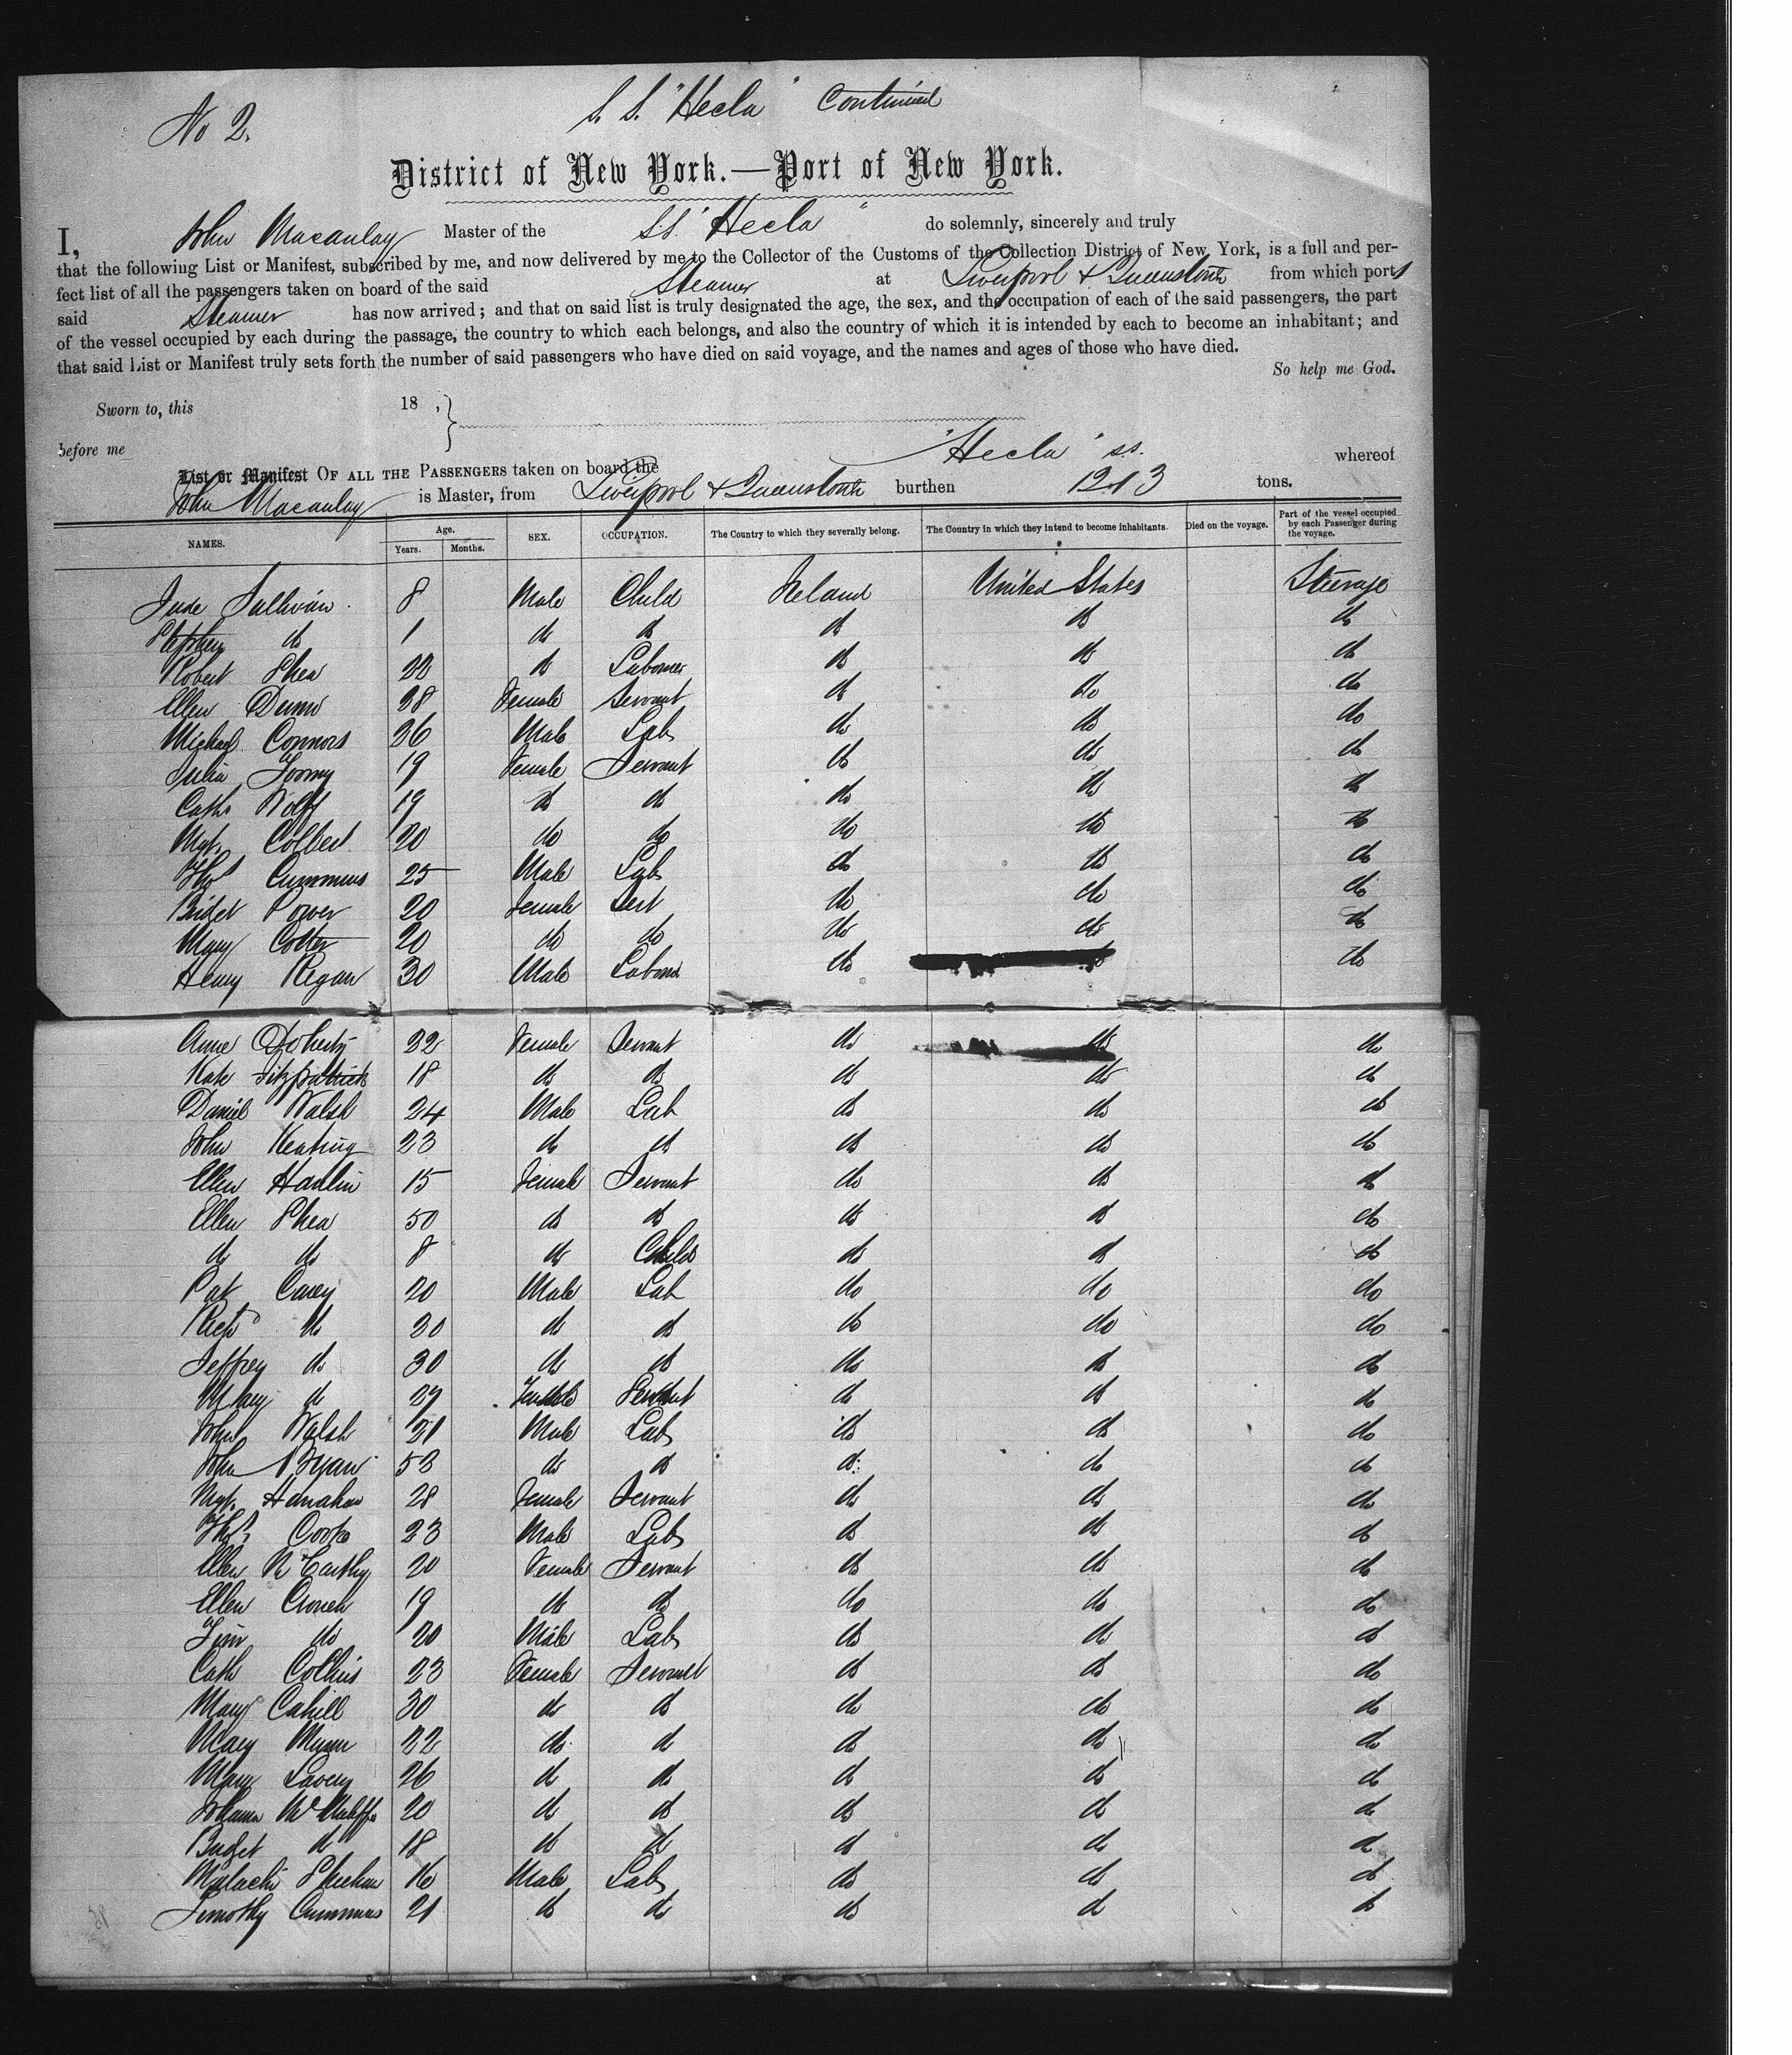 No 2.
S. S. "Hecla" Continued
District of New York.—Port of New York.
I, John Macaulay Master of the S.S. "Hecla" do solemnly, sincerely and truly
that the following List or Manifest, subscribed by me, and now delivered by me to the Collector of the Customs of the Collection District of New York, is a full and per-
fect list of all the passengers taken on board of the said Steamer at Liverpool & Queenstown from which ports
said Steamer has now arrived; and that on said list is truly designated the age, the sex, and the occupation of each of the said passengers, the part
of the vessel occupied by each during the passage, the country to which each belongs, and also the country of which it is intended by each to become an inhabitant; and
that said List or Manifest truly sets forth the number of said passengers who have died on said voyage, and the names and ages of those who have died.
So help me God.
Sworn to, this 18 ,
before me
List or Manifest OF ALL THE PASSENGERS taken on board the "Hecla" SS. whereof
John Macaulay is Master, from Liverpool & Queenstown burthen 1213 tons.
NAMES. Age. Years. Months. SEX. OCCUPATION. The Country to which they severally belong. The Country in which they intend to become inhabitants. Died on the voyage. Part of the vessel occupied by each Passenger during the voyage.
Sullivan 8 Male Child Ireland United States Steerage
Stephen do 1 do do do do do
Robert Shea 22 do Labourer do do do
Ellen Dunn 28 Female Servant do do do
Michael Connors 26 Male Lab do do do
Julia Toomy 19 Female Servant do do do
Cath Wolff 19 do do do do do
Mgt. Colbert 20 do do do do do
Thos Cummins 25 Male Lab do do do
Bridget Power 20 Female Sert do do do
Mary Cotter 20 do do do do do
Henry Regan 30 Male Labour do do do
Anne Doherty 22 Female Servant do do do
Kate Fitzpatrick 18 do do do do do
Daniel Walsh 24 Male Lab do do do
John Keating 23 do do do do do
Ellen Hanlin 15 Female Servant do do do
Ellen Shea 50 do do do do do
do do 8 do Child do do do
Pat Carey 20 Male Lab do do do
do do do do do do
Jeffrey do 30 do do do do do
Mary do 27 Female Servant do do do
John Walsh 21 Male Lab do do do
John Ryan 53 do do do do do
Mgt. Hanahan 28 Female Servant do do do
Thos Cooke 23 Male Lab do do do
Ellen McCarthy 20 Female Servant do do do
Ellen Cronen 19 do do do do do
Tim do 20 Male Lab do do do
Cath Collins 23 Female Servant do do do
Mary Cahill 30 do do do do do
Mary 22 do do do do do
Mary Lavery 26 do do do do do
Johanna 20 do do do do do
Bridget do 18 do do do do do
Malachi Sheehan 16 Male Lab do do do
Timothy Cummins 21 do do do do do